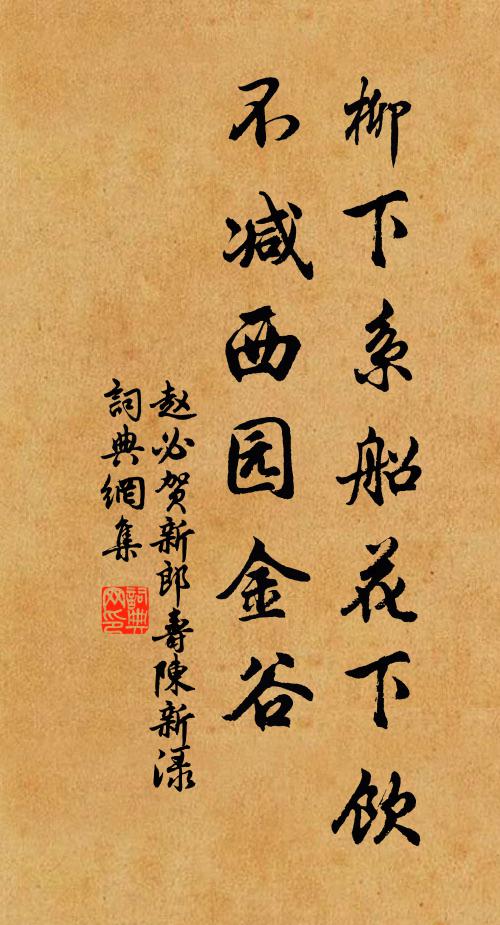 柳下系船花下饮
不减西园金谷
赵必贺新郎寿陳新渌
詞典網集
詞典
网印